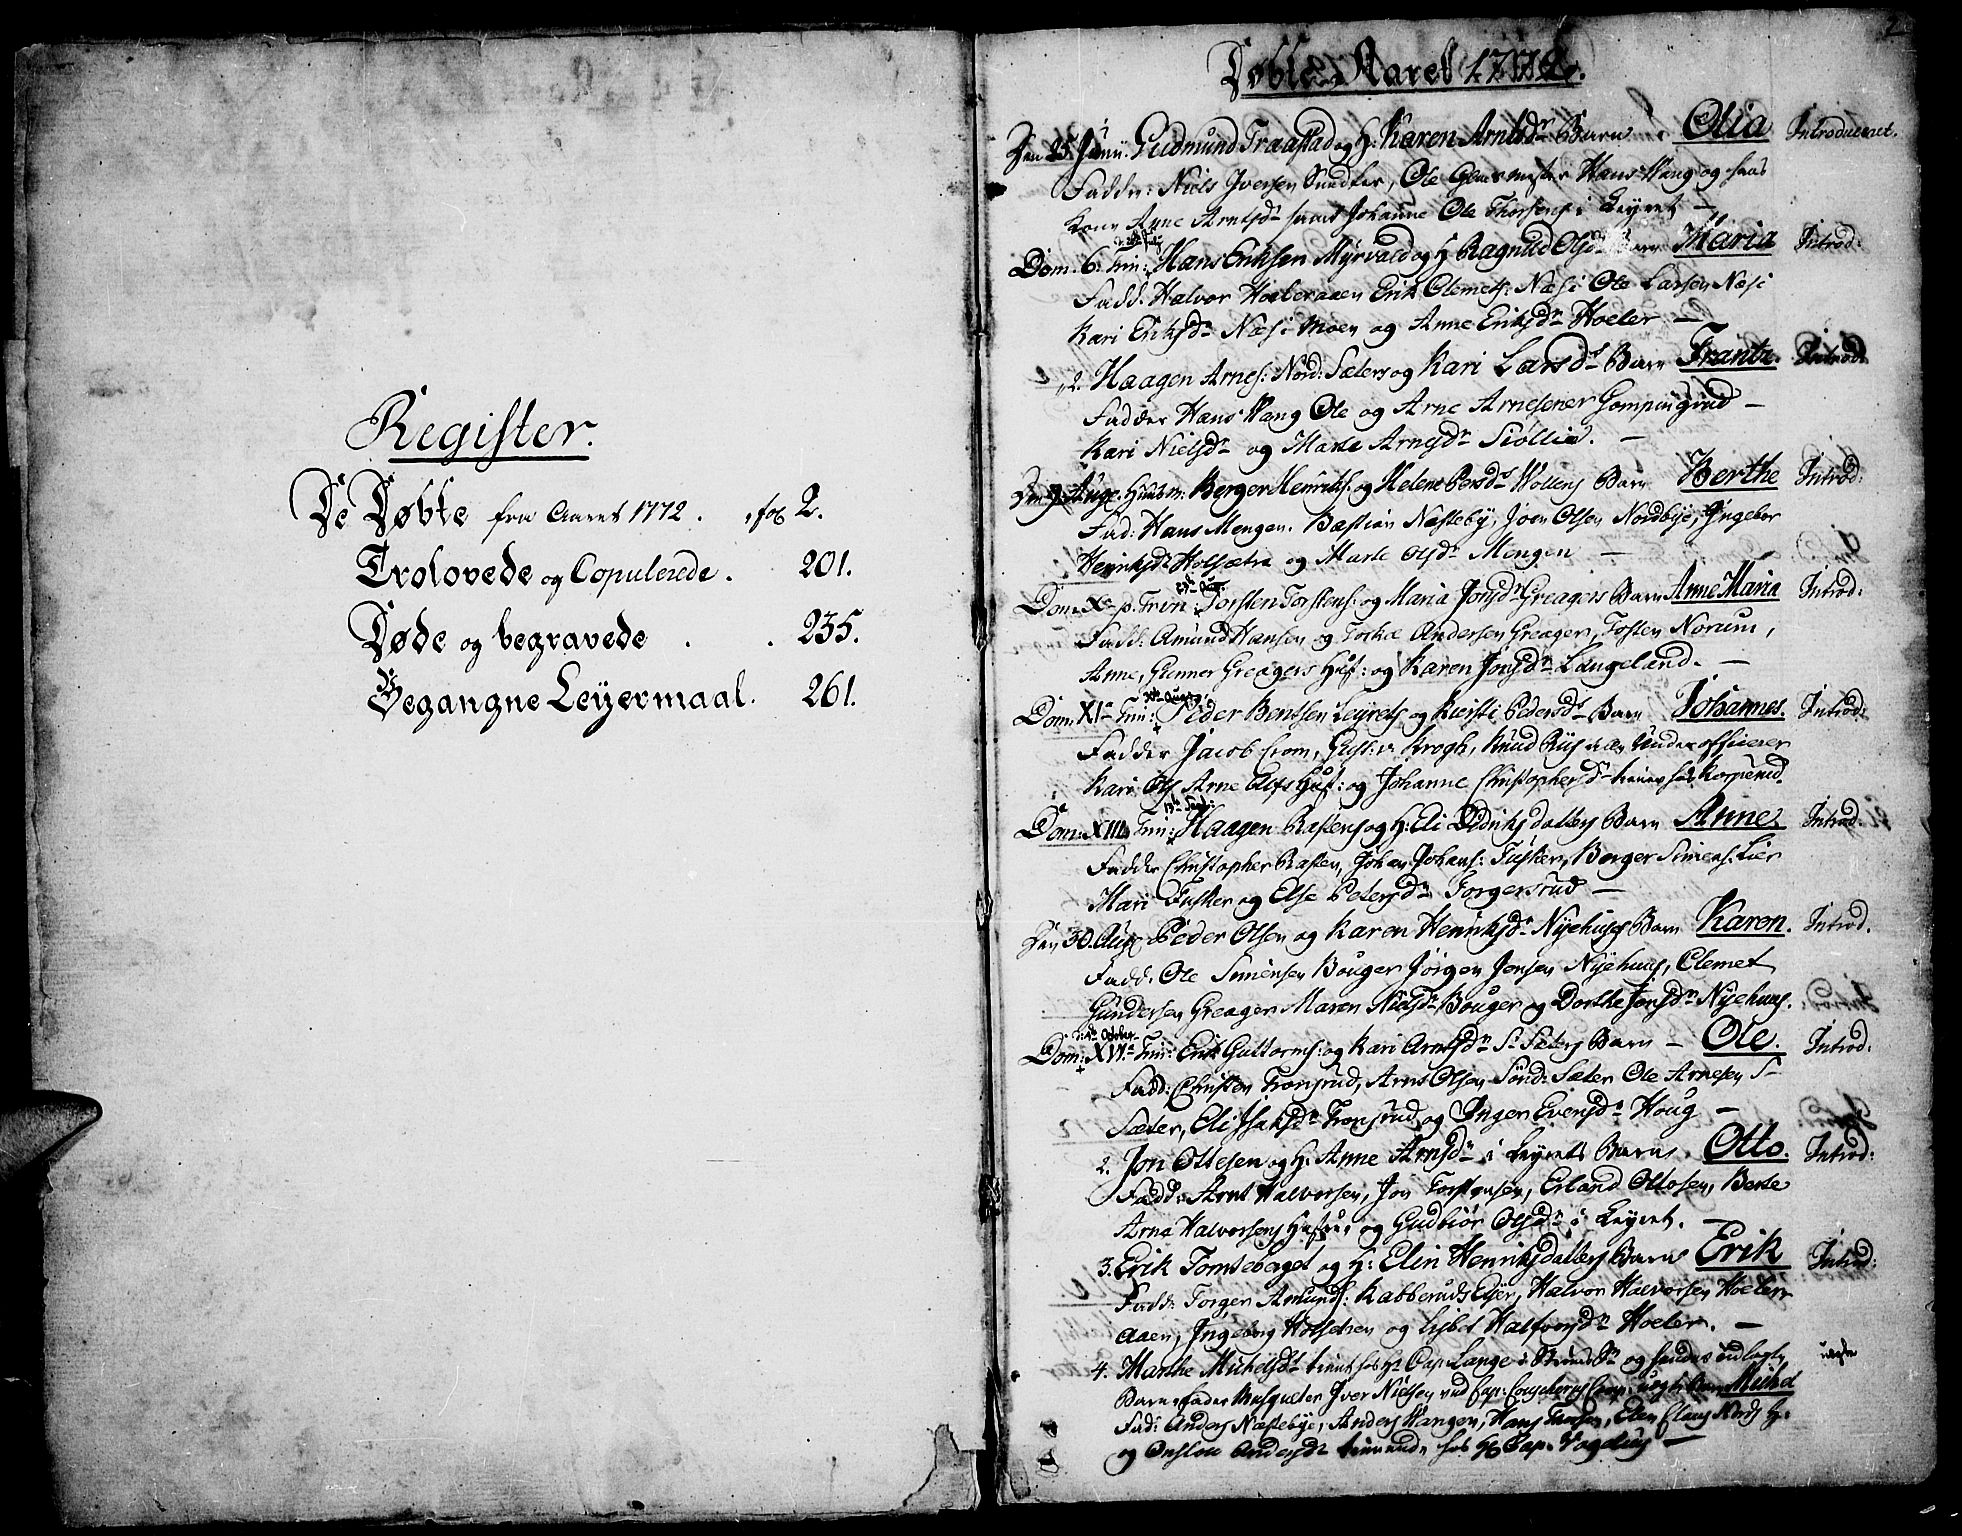 Register.
De Døbte fra Aaret 1772. fol 2.
Trolovede og Copulerede. 201.
Døde og begravede . . 235.
Begangne Leyermaal. 261.
2
Døbte Aaret 1772.
Den 25 Junii. Gudmund Traastad og H: Karen Arntsdr Barn Olia Introduceret.
Fadder: Niels Iversen Sundter, Ole Glarmester Hans Wang og hans
kone Anne Arntsdr samt Johanne Ole Thorsens i Leyret —
Dom. 6. Trin: Hans Eriksen Myrvald og H Ragnild Olsdr Barn Maria Introd:
Fadd: Halvor Hoeleraaen Erik Clemets: Næs: Ole Larsen Næs:
Kari Eriksdr Næs: Moen og Anne Eriksdr Hoeler —
2. Haagen Arnes: Nord: Sæters og Kari Larsdr Barn Frantz. Introd:
Fadder Hans Wang Ole og Arne Arnesener Gompingrud —
Kari Nielsdr og Marte Arnesdr Siøllie. —
Den Aug: Huusm: Berger Henriks: og Helene Persdr Wollens Barn Berthe Introd:
Fad: Hans Mengen. Bastian Næsteby, Joen Olsen Nordbye, Ingebor
Henriksdr Holsætra og Marte Olsdr Mengen —
Dom. X p. Trin: Torsten Torstens: og Maria Jonsdr Greagers Barn Anne Maria Introd:
Fadd: Amund Hansen og Torkel Andersen Greager, Tosten Norum,
Anne, Gunner Greagers Hust: og Karen Jonsdr Langeland. —
Dom: XI Trin: Peder Bentsen Leyrets og Kiersti Pedersdr Barn Johannes. Introd:
Fadder Jacob Crom, Gust: v. Krogh, Knud Riis alle Underofficerer
Kari Ols Arne Alfs Hust: og Johanne Christophersdr tiener hos Korperud
Dom: XIII Trin: Haagen Rastens og H: Eli Didriksdatters Barn Anne Introd:
Fadder Christopher Rasten, Johan Johans: Fusker, Berger Simens: Lier
Mari Fusker og Else Petersdr Torgersrud —
Den 30. Aug Peder Olsen og Karen Henriksdr Nyehuses Barn Karen. Introd.
Fadd. Ole Simensen Bouger Jørgen Jensen Nyehuus, Clemet
Gundersen Greager Maren Nielsdr Bouger og Dorthe Jensdr Nyehuus.
Dom: XVI Trin: Erik Guttorms: og Kari Arntsdr S: Sæters Barn — Ole. Introd:
Fadd: Christen Tronsrud, Arne Olsen Sønd: Sæter Ole Arnesen S:
Sæter, Eli Isaksdr Tronsrud og Inger Evensdr Houg —
2. Jon Ottesen og H: Anne Arnesdr i Leyrets Barn. Otto. Introd:
Fadd: Arnt Halvorsen, Jon Torstensen, Erland Ottosen, Berte
Arne Halvorsens Hustrue og Gudbiør Olsdr i Leyret. —
3. Erik Tomteberget og H: Elin Henriksdatters Barn Erik Introd:
Fadd: Torger Amunds: Kabberuds Eyer, Halvor Halvorsen Hoeler
aaen, Ingeborg Holseteren og Lisbet Halfvorsdr Hoeler. —
4. Marthe Michelsdr tient hos Hr Cap: Lange i og hendes udlagte uægte
Barne fader Musqueter Iver Nielsen ved Cap: Comp: uægte Barn Michel
Fad: Anders Næstebye, Anders Wangen, Hans Thorsen, Elen Claus Nords H:
og Onslou Andersdr tienende hos Hr Cap: Vogelius —